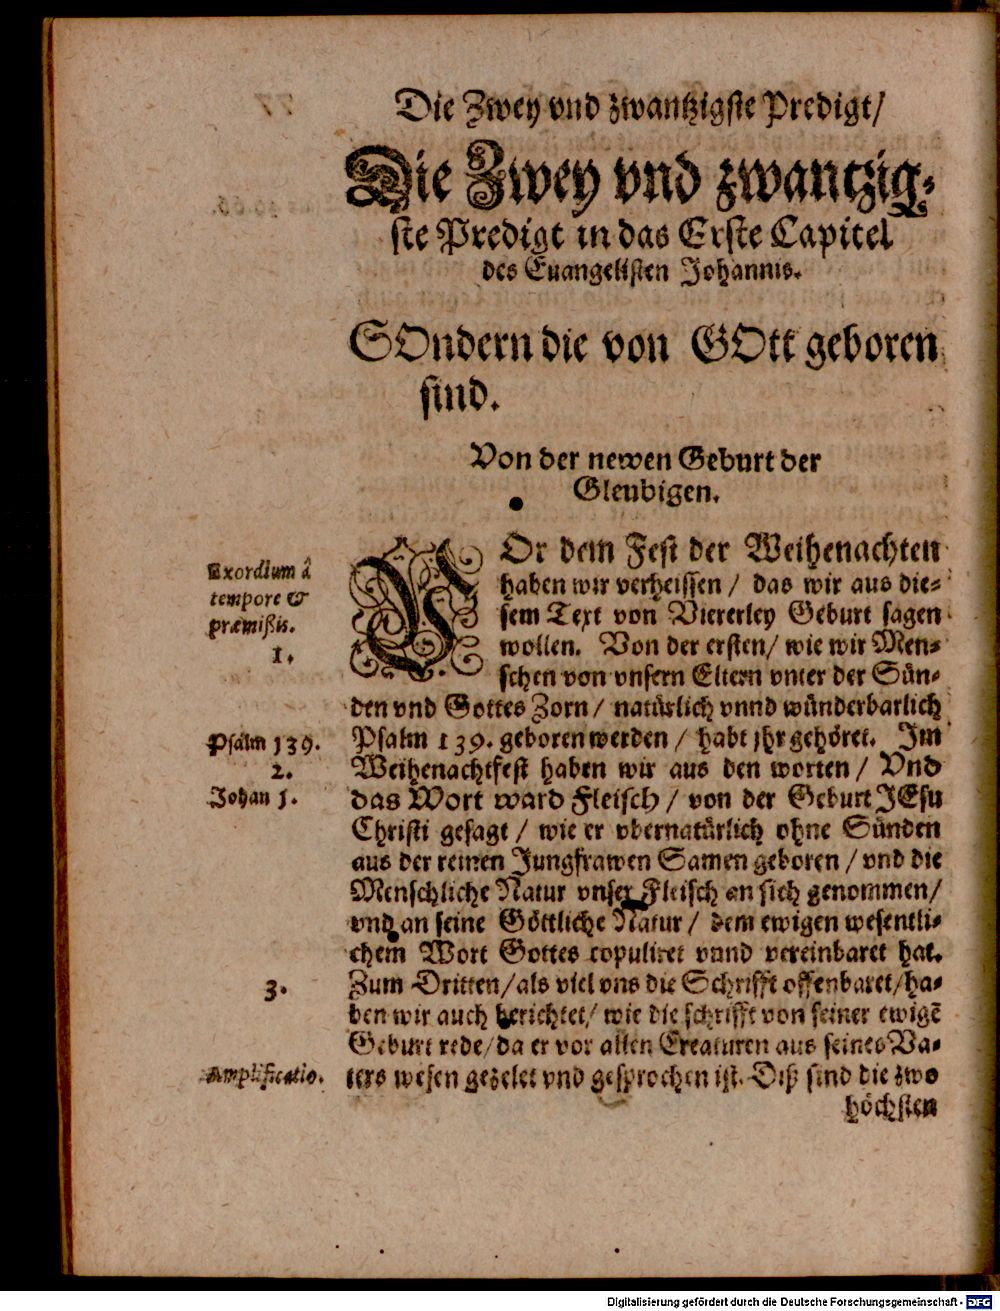 Die Zwey vnd zwantzigste Predigt/
Die Zwey vnd zwantzig-
ste Predigt in das Erste Capitel
des Euangelisten Johannis.
SOndern die von GOtt geboren
sind.
Von der newen Geburt der
Gleubigen.
Exordium â
tempore &
præmißis.
1.
VOr dem Fest der Weihenachten
haben wir verheissen / das wir aus die-
sem Text von Viererley Geburt sagen
wollen. Von der ersten/ wie wir Men-
schen von vnsern Eltern vnter der Sün-
den vnd Gottes Zorn / natürlich vnnd wünderbarlich
Psalm 139.
Psalm 139. geboren werden / habt jhr gehöret. Im
2.
Weihenachtfest haben wir aus den worten / Vnd
Johan 1.
das Wort ward Fleisch / von der Geburt JEsu
Christi gesagt / wie er vbernatürlich ohne Sünden
aus der reinen Jungfrawen Samen geboren / vnd die
Menschliche Natur vnser Fleisch an sich genommen/
vnd an seine Göttliche Natur / dem ewigen wesentli-
chem Wort Gottes copuliret vnnd vereinbaret hat.
3.
Zum Dritten/als viel vns die Schrifft offenbaret/ha-
ben wir auch berichtet/ wie die schrifft von seiner ewigē
Geburt rede/da er vor allen Creaturen aus seines Va-
Amplificatio.
ters wesen gezelet vnd gesprochen ist. Diß sind die zwo
höchsten
Digitalisierung gefördert durch die Deutsche Forschungsgemeinschaft - DFG